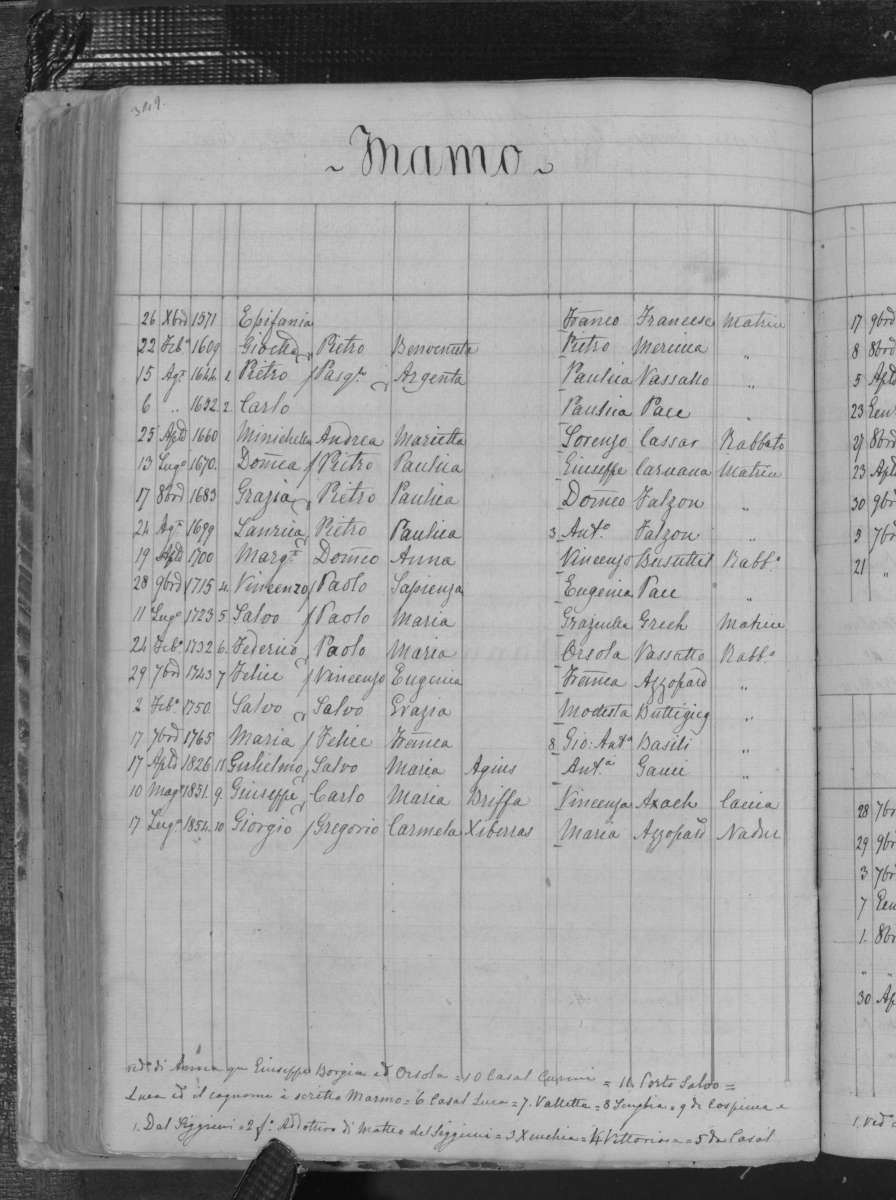 349.
~ Mamo ~
26 Xbre 1571 Epifania Franco Francese Matrice
22 Feb.o 1609 Pietro Benvenuta Pietro Mercieca „
15 Ag.o 1644 1 Pietro f Pasq.le Argenta Paulica Vassallo „
6 „ 1652 2 Carlo Paulica Pace „
25 Aple 1660 Minichella Andrea Marietta Lorenzo Cassar Rabbato
13 Lug.o 1670. Domca f Pietro Paulica Giuseppe Caruana Matrice
17 8bre 1683 Grazia Pietro Paulica Domco Falzon „
24 Ag.o 1699 Laurica Pietro Paulica 3 Ant.o Falzon „
19 Aple 1700 Marg.ta Domco Anna Vincenzo Busuttil Rabb.o
28 9bre 1715 4. Vincenzo f Paolo Sapienza Eugenia Pace „
11 Lug.o 1723 5 Salvo f Paolo Maria Graziulla Grech Matrice
24 Feb.o 1732 6. Federico Paolo Maria Orsola Vassallo Rabb.o
29 7bre 1743 7 Felice f Vincenzo Eugenia Franca Azzopard „
2 Feb.o 1750. Salvo Salvo Grazia Modesta Buttigieg „
17 7bre 1765 Maria f Felice Franca 8 Gio: Ant.o Basili „
17 Aple 1826 11 Guglielmo Salvo Maria Agius Ant.a Gauci „
10 Mag.o 1831. 9. Giuseppe Carlo Maria Briffa Vincenza Axach Caccia
17 Lug.o 1854. 10 Giorgio f Gregorio Carmela Xiberras Maria Azzopard Nadur
ved.o di Anna qm Giuseppe Borgia ed Orsola = 10 Casal Curmi = 11. Porto Salvo =
Luca ed il cognome è scritto Marmo = 6 Casal Luca = 7. Valletta = 8 Senglea = 9 di Cospicua e
1. Dal Siggieui = 2 f.o Addottivo di Matteo del Siggieui = 3 Xeuchia = 4 Vittoriosa = 5 da Casal
17 9bre
8 8bre
5 Aple
23 Gen
27 8bre
23 Aple
30 9bre
3 7bre
21 „
28 7br
29 9br
3 7br
7 Gen
1. 8br
„ „
30 Ap
1. ved.o